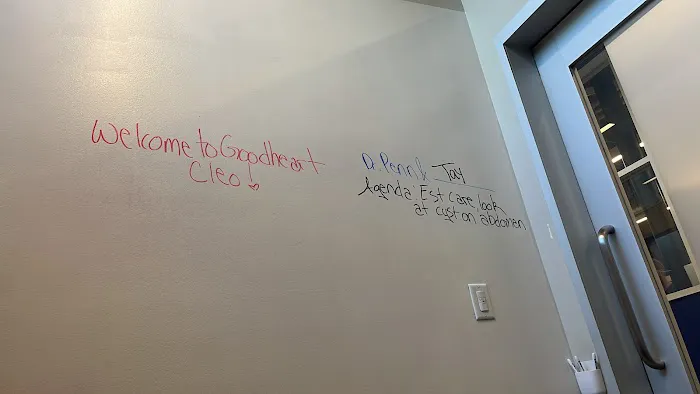 Welcome to Goodheart
Cleo!
D. Penn & Jay
Agenda: Est care, look
at cyst on abdomen